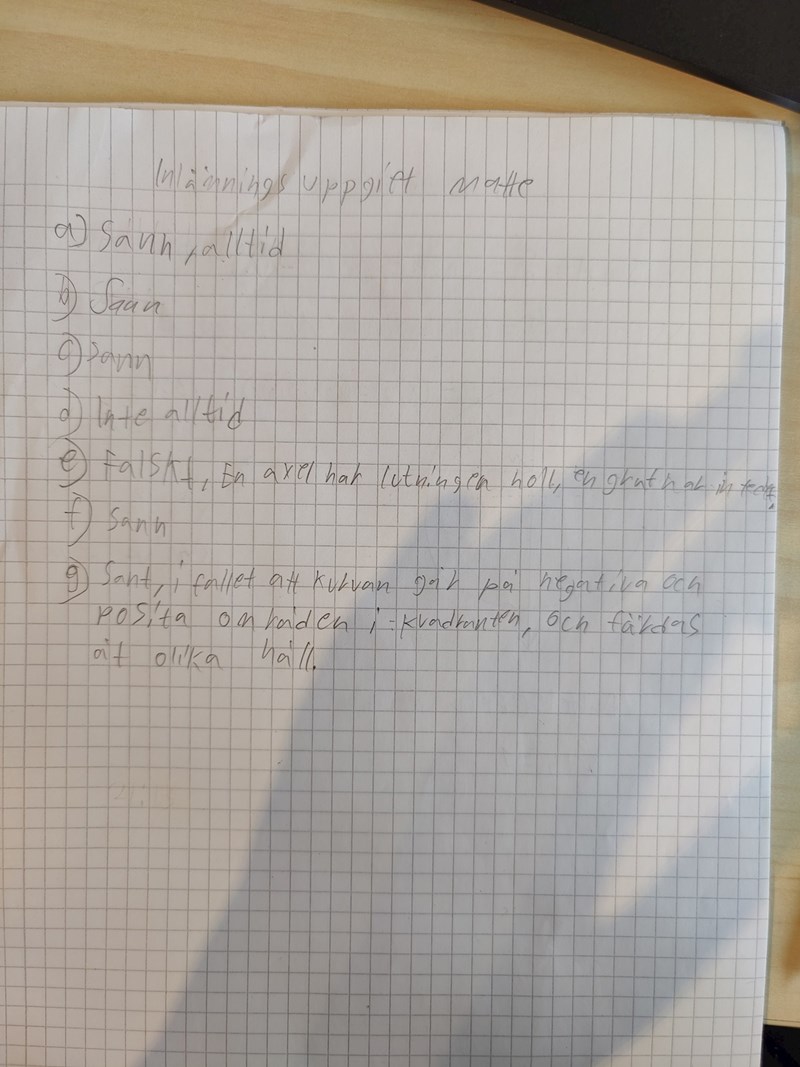 Inlämnings uppgift matte
a) Sann, alltid
b) Sann
c) Sann
d) Inte alltid
e) Falskt, En axel har lutningen noll, en graf har inte det.
f) Sann
g) Sant, i fallet att kurvan går på negativa och
posita områden i kvadranten, och färdas
åt olika håll.